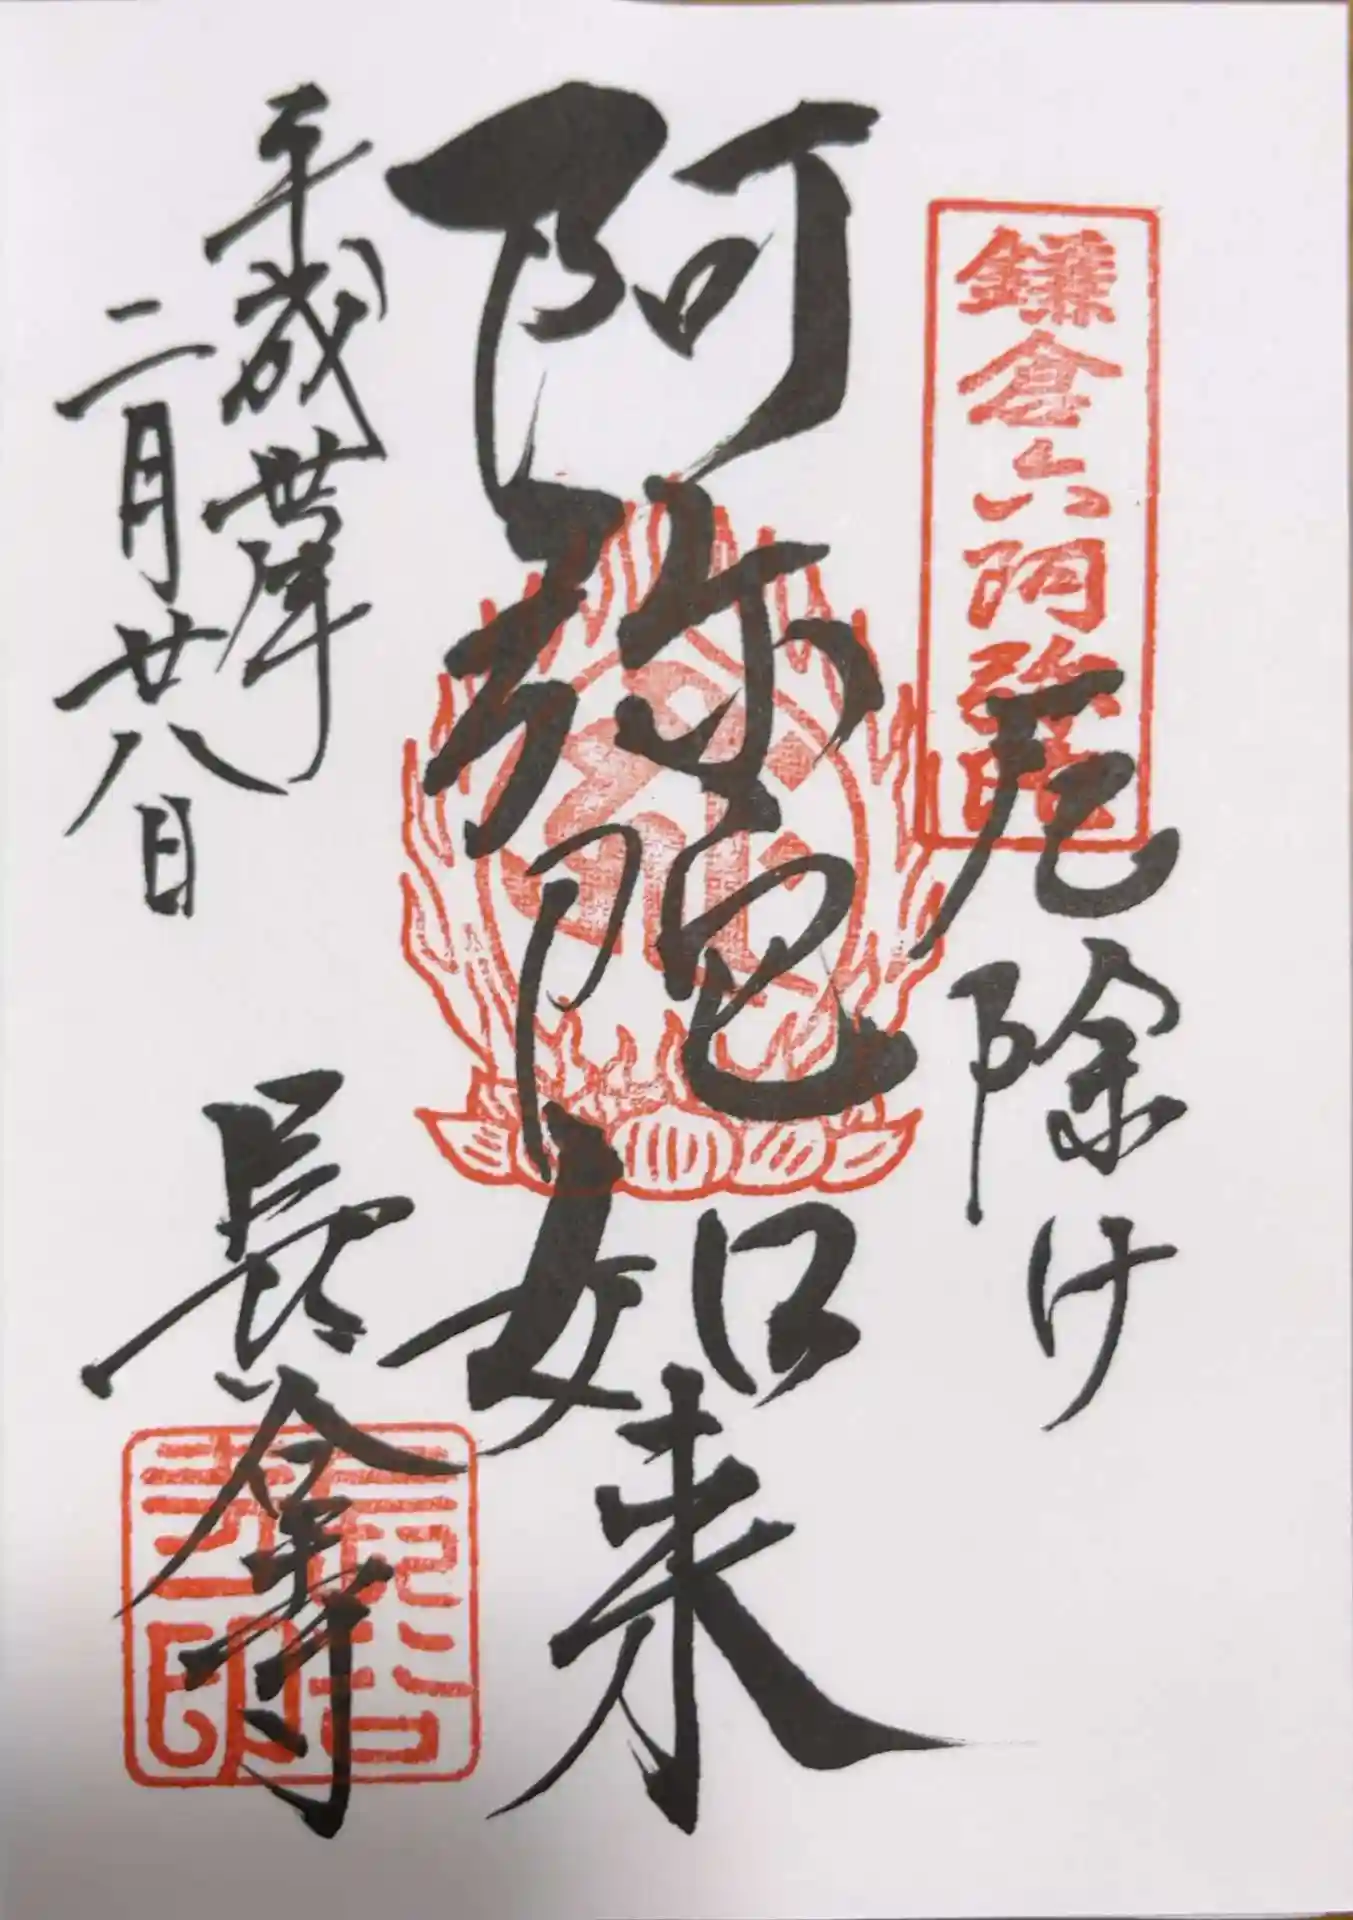 鎌倉六阿弥陀
厄除け
阿弥陀如来
平成丗年
二月廿八日